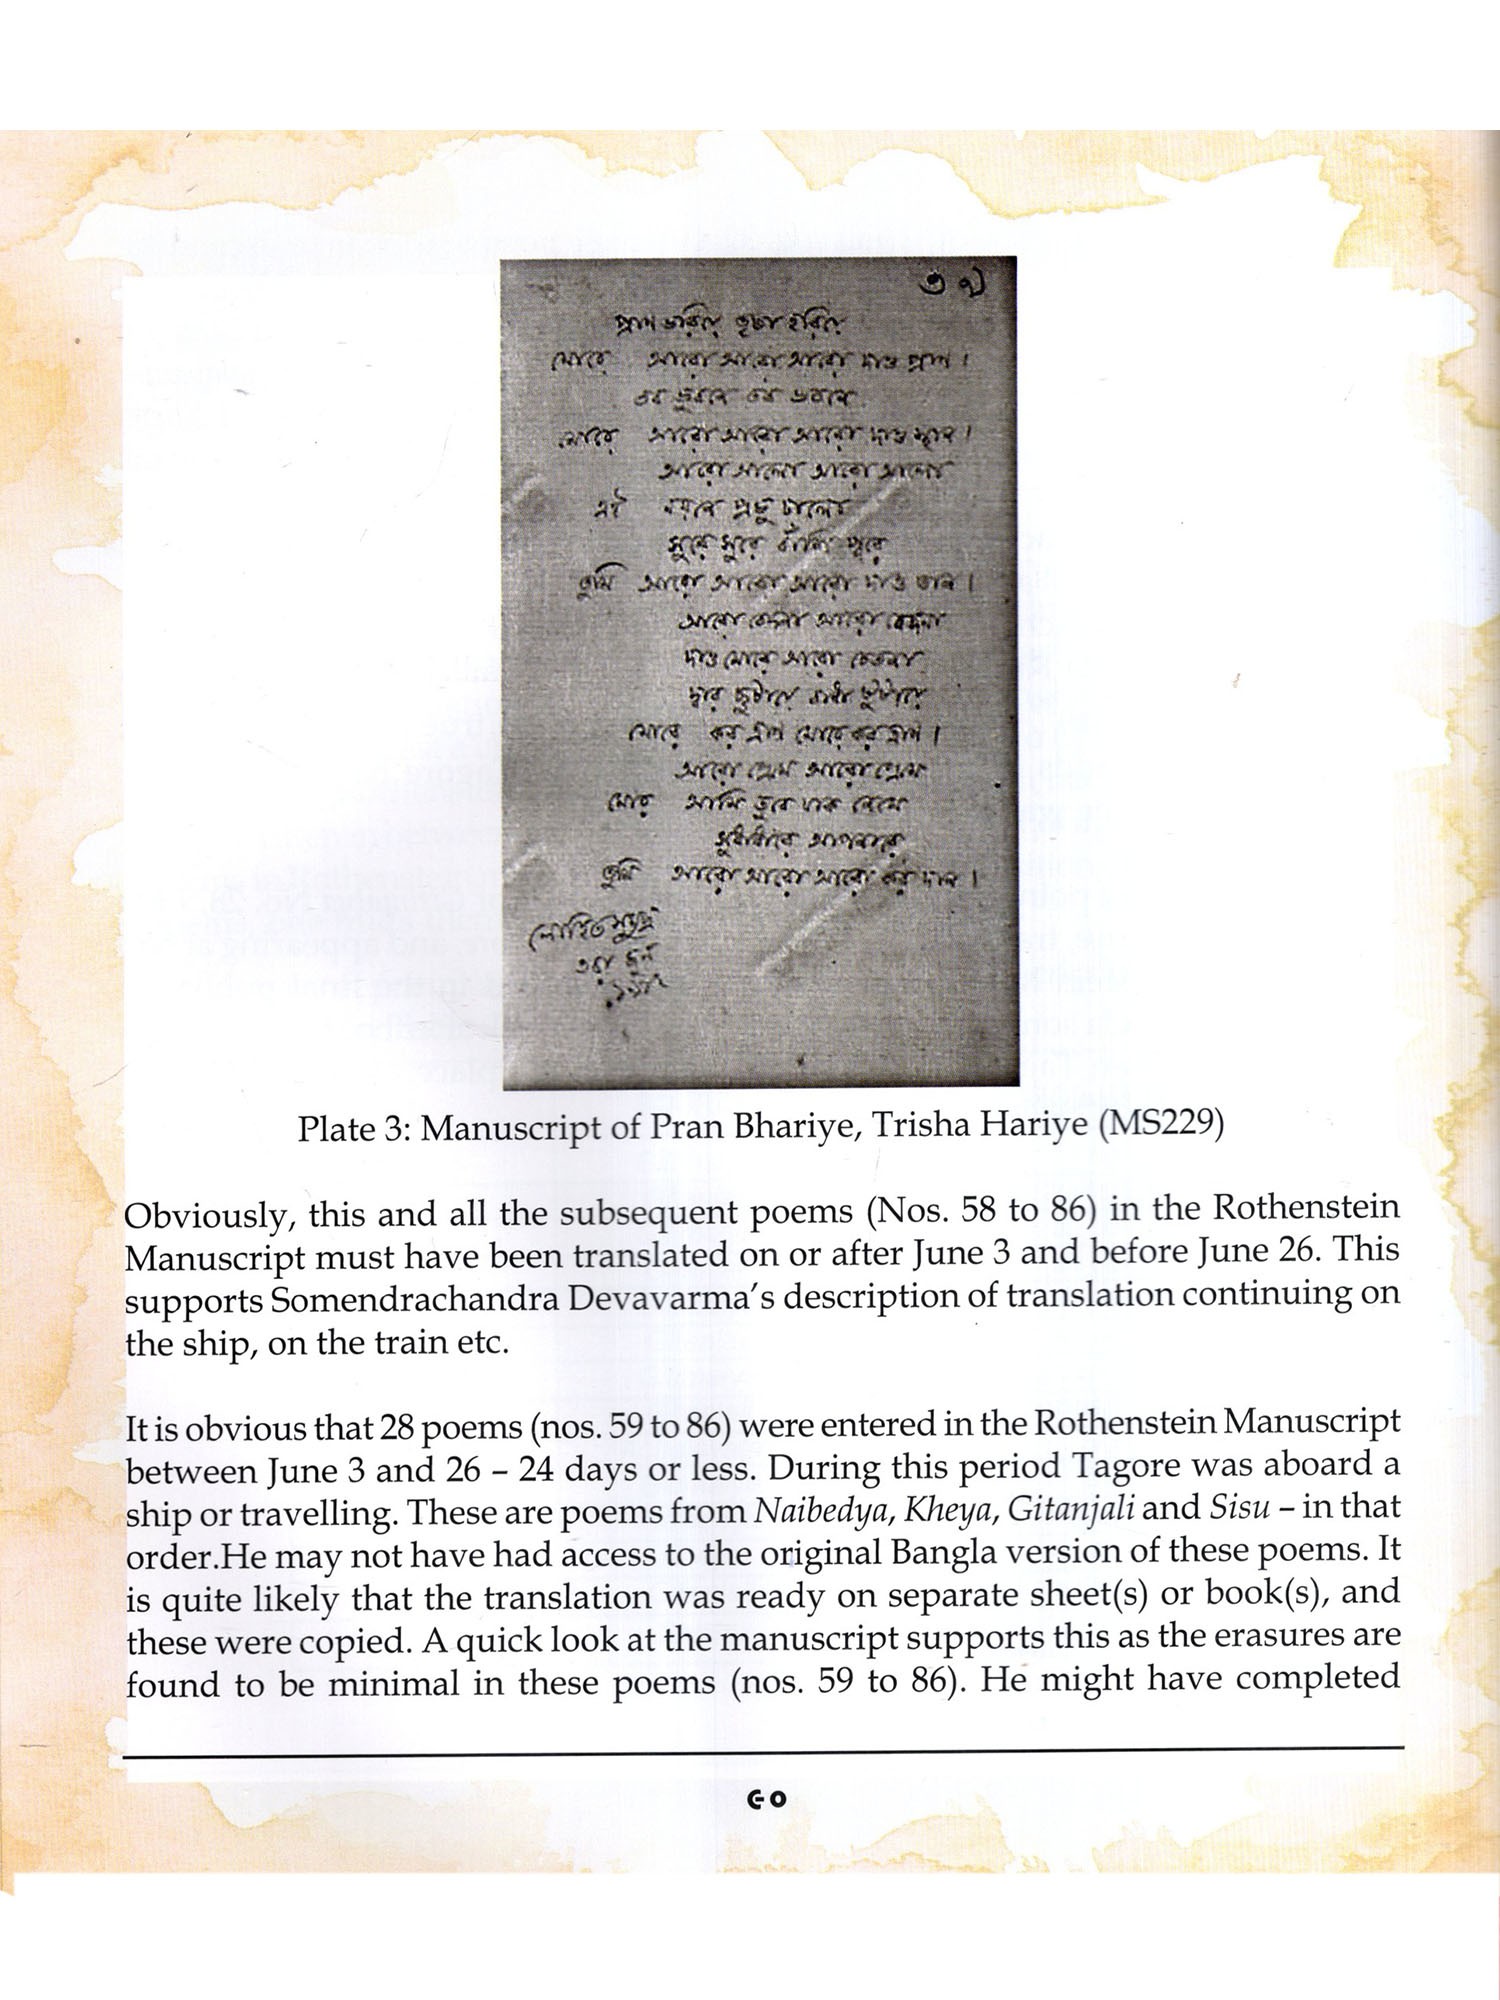 ৩৭
প্রাণ ভরিয়ে তৃষা হরিয়ে
মোরে আরো আরো আরো দাও প্রাণ।
তব ভুবনে তব ভবনে
মোরে আরো আরো আরো দাও স্থান।
আরো আলো আরো আলো
এই নয়নে প্রভু ঢালো
সুরে সুরে বাঁশি পূরে
তুমি আরো আরো আরো দাও তান।
আরো বেদনা আরো বেদনা
দাও মোরে আরো চেতনা
দ্বার ছুটায়ে বাধা টুটায়ে
মোরে কর ত্রাণ মোরে কর ত্রাণ।
আরো প্রেমে আরো প্রেমে
মোর আমি ডুবে যাক নেমে
সুধাধারে আপনারে
তুমি আরো আরো আরো কর দান।
লোহিত সমুদ্র
৩রা জুন
১৯১২
Plate 3: Manuscript of Pran Bhariye, Trisha Hariye (MS229)
Obviously, this and all the subsequent poems (Nos. 58 to 86) in the Rothenstein
Manuscript must have been translated on or after June 3 and before June 26. This
supports Somendrachandra Devavarma's description of translation continuing on
the ship, on the train etc.
It is obvious that 28 poems (nos. 59 to 86) were entered in the Rothenstein Manuscript
between June 3 and 26 – 24 days or less. During this period Tagore was aboard a
ship or travelling. These are poems from Naibedya, Kheya, Gitanjali and Sisu – in that
order.He may not have had access to the original Bangla version of these poems. It
is quite likely that the translation was ready on separate sheet(s) or book(s), and
these were copied. A quick look at the manuscript supports this as the erasures are
found to be minimal in these poems (nos. 59 to 86). He might have completed
৫০